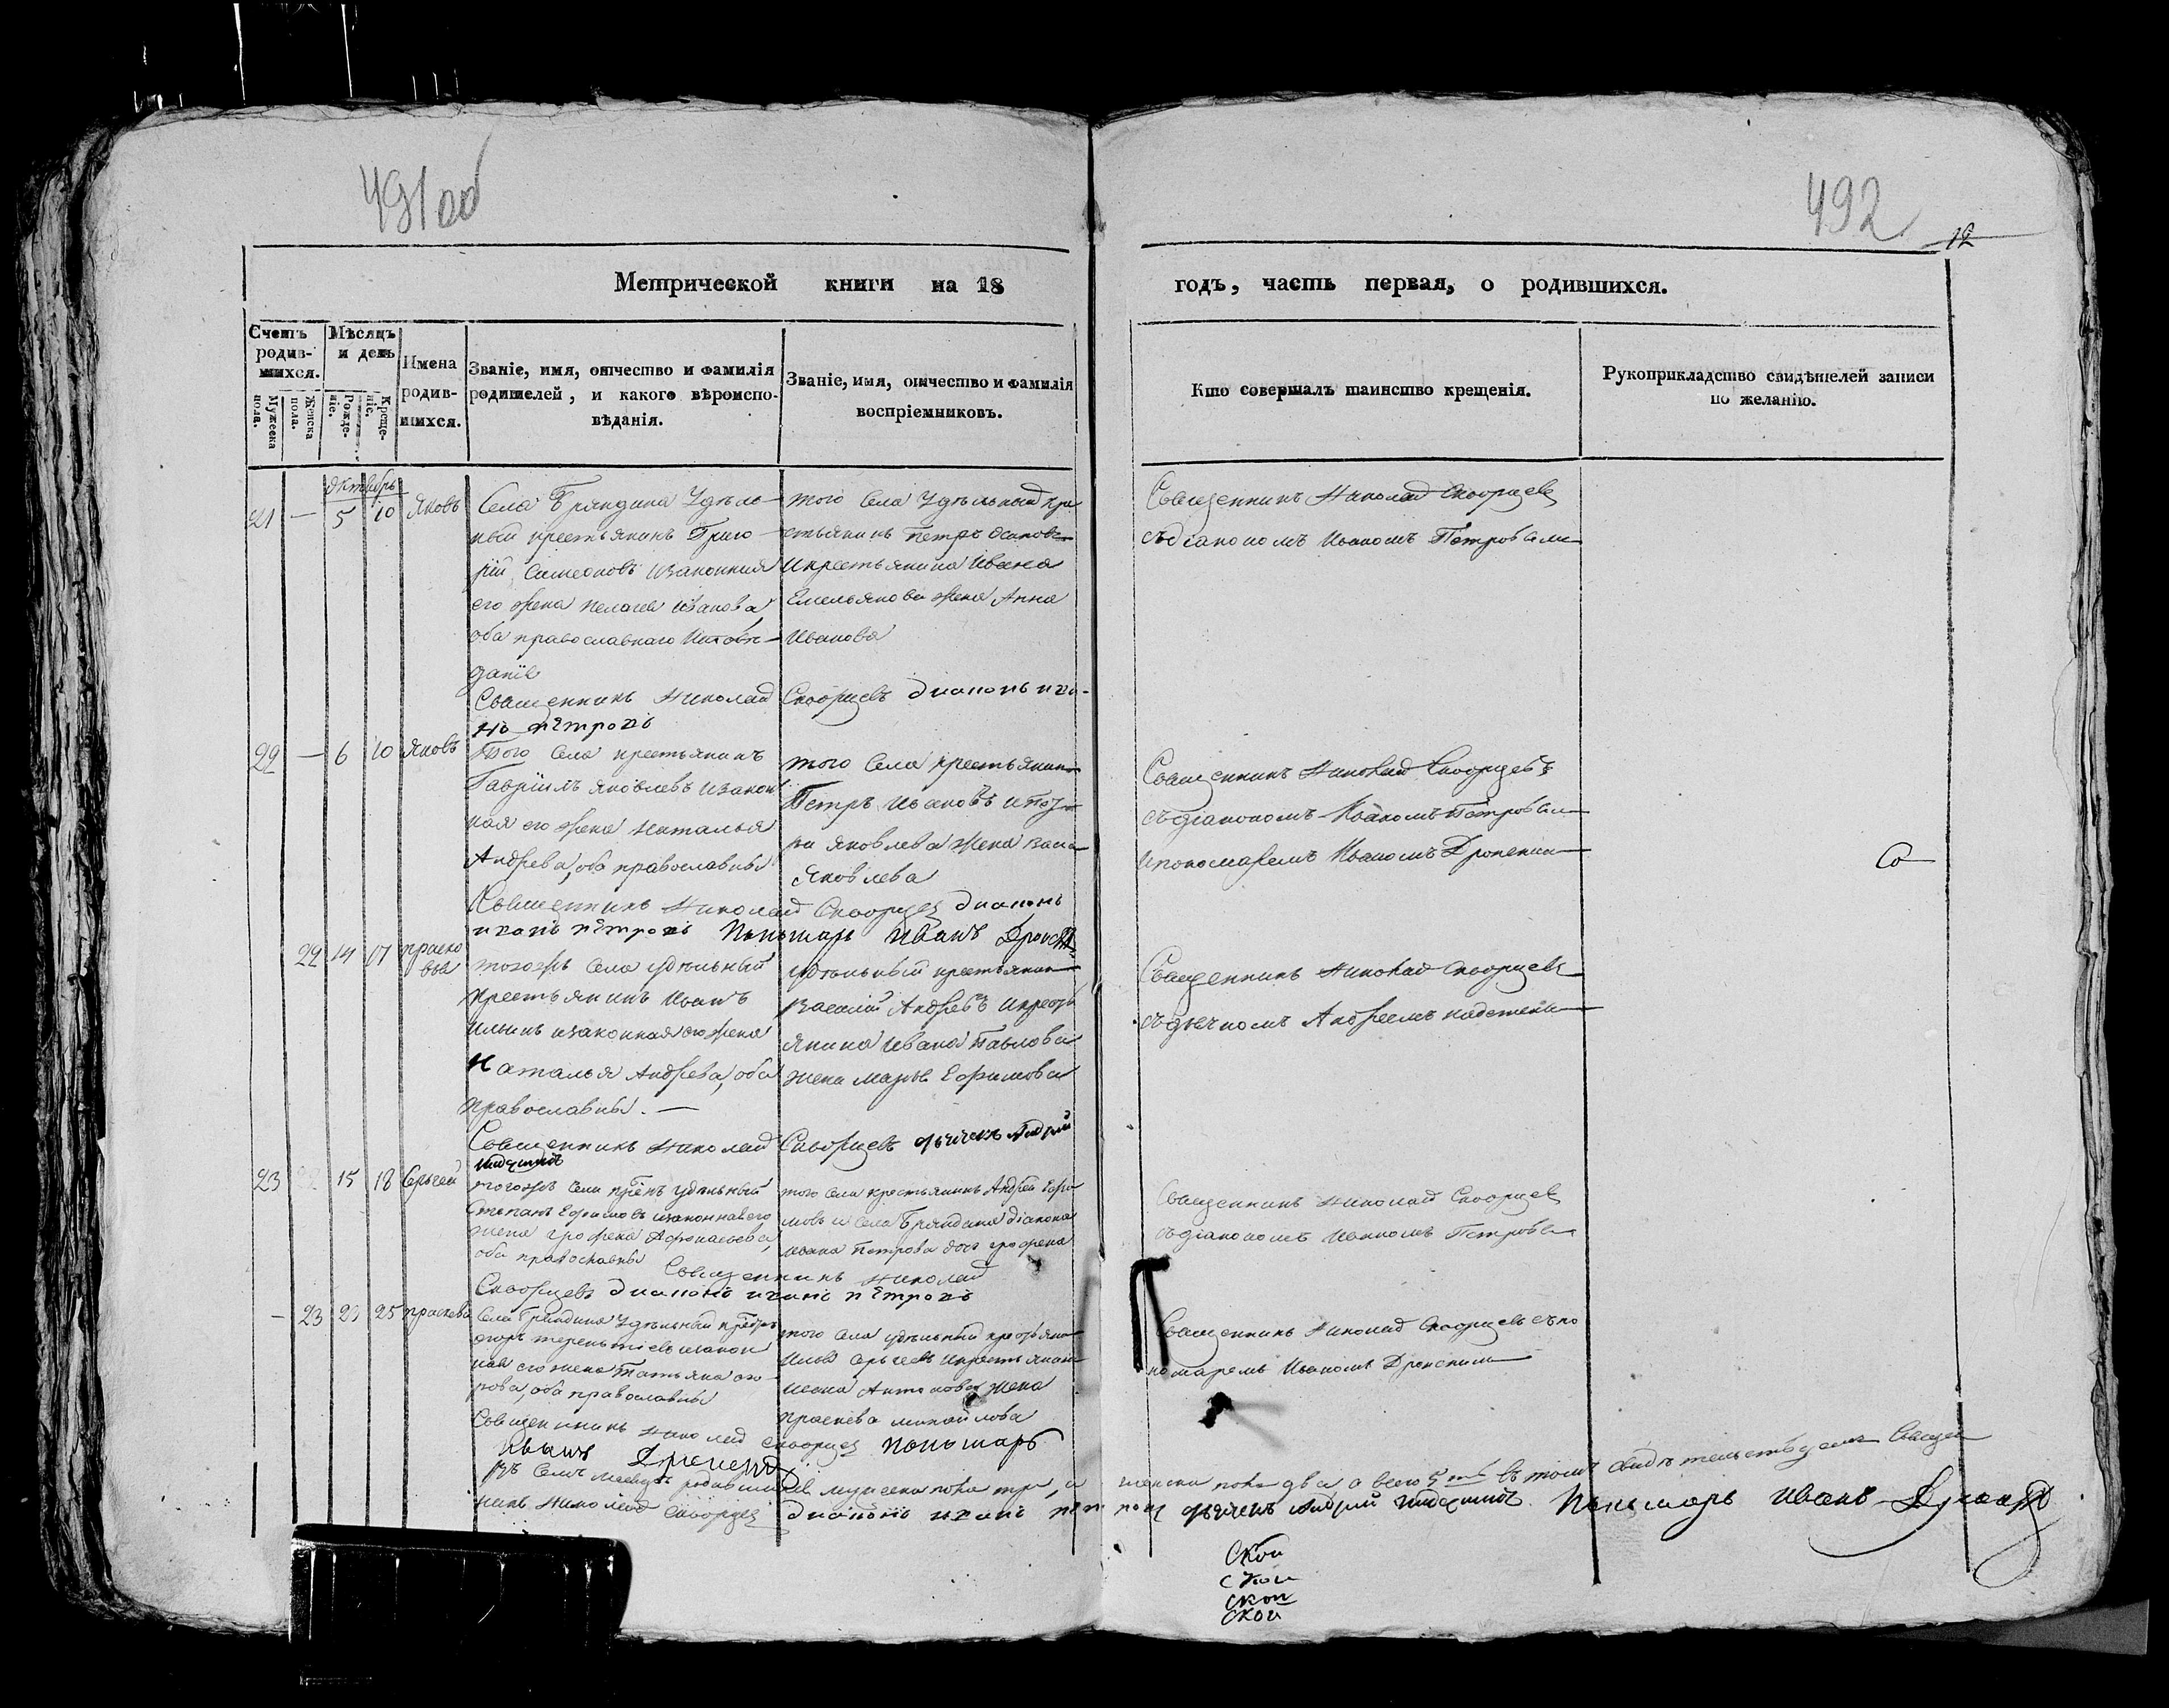 491об
492
12
Метрической книги на 18
годъ, часть первая, о родившихся.
Счетъ родив-шихся.
Мужеска пола.
Женска пола.
Мѣсяцъ и день
Рожде-ніе.
Креще-ніе.
Имена родив-шихся.
Званіе, имя, отчество и фамилія
родителей, и какого вѣроиспо-
вѣданія.
Званіе, имя, отчество и фамилія
воспріемниковъ.
Кто совершалъ таинство крещенія.
Рукоприкладство свидѣтелей записи
по желанію.
Октябрь
21 — 5 10 Яковъ
Села Бряндина Удѣль-
ный крестьянинъ Григо-
рій Симеоновъ изаконная
его жена Пелагея Иванова
оба православнаго
даніе
того Села Удѣльный кре
стьянинъ Петръ Осиповъ
икрестьянина Ивана
Емельянова жена Анна
Иванова
Священникъ Николай Скворцевъ
съдіакономъ Иваномъ Петровымъ
Священникъ Николай Скворцевъ диаконъ ива-
нъ петровъ
22 — 6 10 Яковъ
Того Села крестьянинъ
Гавріилъ Яковлевъ изакон
ная его жена Наталья
Андрева, оба православны
того Села крестьянинъ
Петръ Ивановъ
Яковлева жена
Яковлева
Священникъ Николай Скворцевъ
съдіакономъ Иваномъ Петровымъ
ипономаремъ Иваномъ
Со
Священникъ Николай Скворцев диаконъ
иванъ петровъ Пономарь Иванъ
22 14 17 праско
вья
тогожъ Села удѣльный
крестьянинъ Иванъ
Ильинъ изаконная его жена
Наталья Андрева, оба
православны. —
удѣльный крестьянин
Василій Андревъ икресть
янина Ивана Павлова
жена Марья Ефимова
Священникъ Николай Скворцевъ
съдьячкомъ Андреемъ
Священникъ Николай Скворцевъ дьячекъ Андрей
23 15 18 Сергей
тогожъ Села крѣнъ удѣльный
Степанъ Ефимовъ изаконная его
жена Аграфена Афонасьева,
оба православны
того Села крестьянинъ Андрей Ефи
мовъ и Села Бряндина діакона
Ивана Петрова дочь
Священникъ Николай Скворцев
съдіакономъ Иваномъ Петровым
Священникъ Николай
Скворцевъ диаконъ иванъ петровъ
— 23 23 25 праскева
Села Бряндина Удѣльный
егоръ терентіевъ изакон
ная его жена Татьяна
оба православны
того Села удѣльный крестьяни
Илья Сергеевъ икрестьянин
Антонова жена
праскева михайлова
Священникъ Николай Скворцевъ съпо
номаремъ Иваномъ
Священникъ Николай Скворцев Пономарь
Иванъ
Семъ месяцѣ родившихся мужеска пола три, а женска пола два, а всего 5ть въ томъ свидѣтельствуемъ Священ
никъ Николай Скворцев диаконъ иванъ дьячекъ Андрей Пономарь Иванъ
Скои
Скои
Скои
Скои